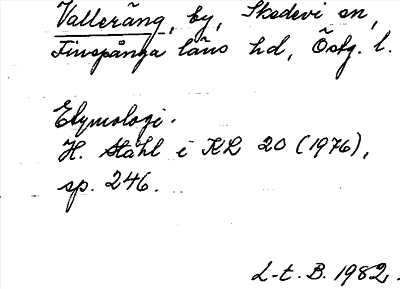 Valleräng, by, Skedevi sn,
Finspånga läns hd, Östg. l.
Etymologi.
H. Ståhl i KL 20 (1976),
sp. 246.
L-t. B. 1982.